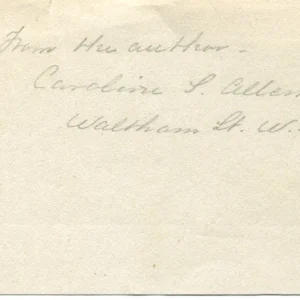 From the author -
Caroline S. Allen
Waltham St. W.